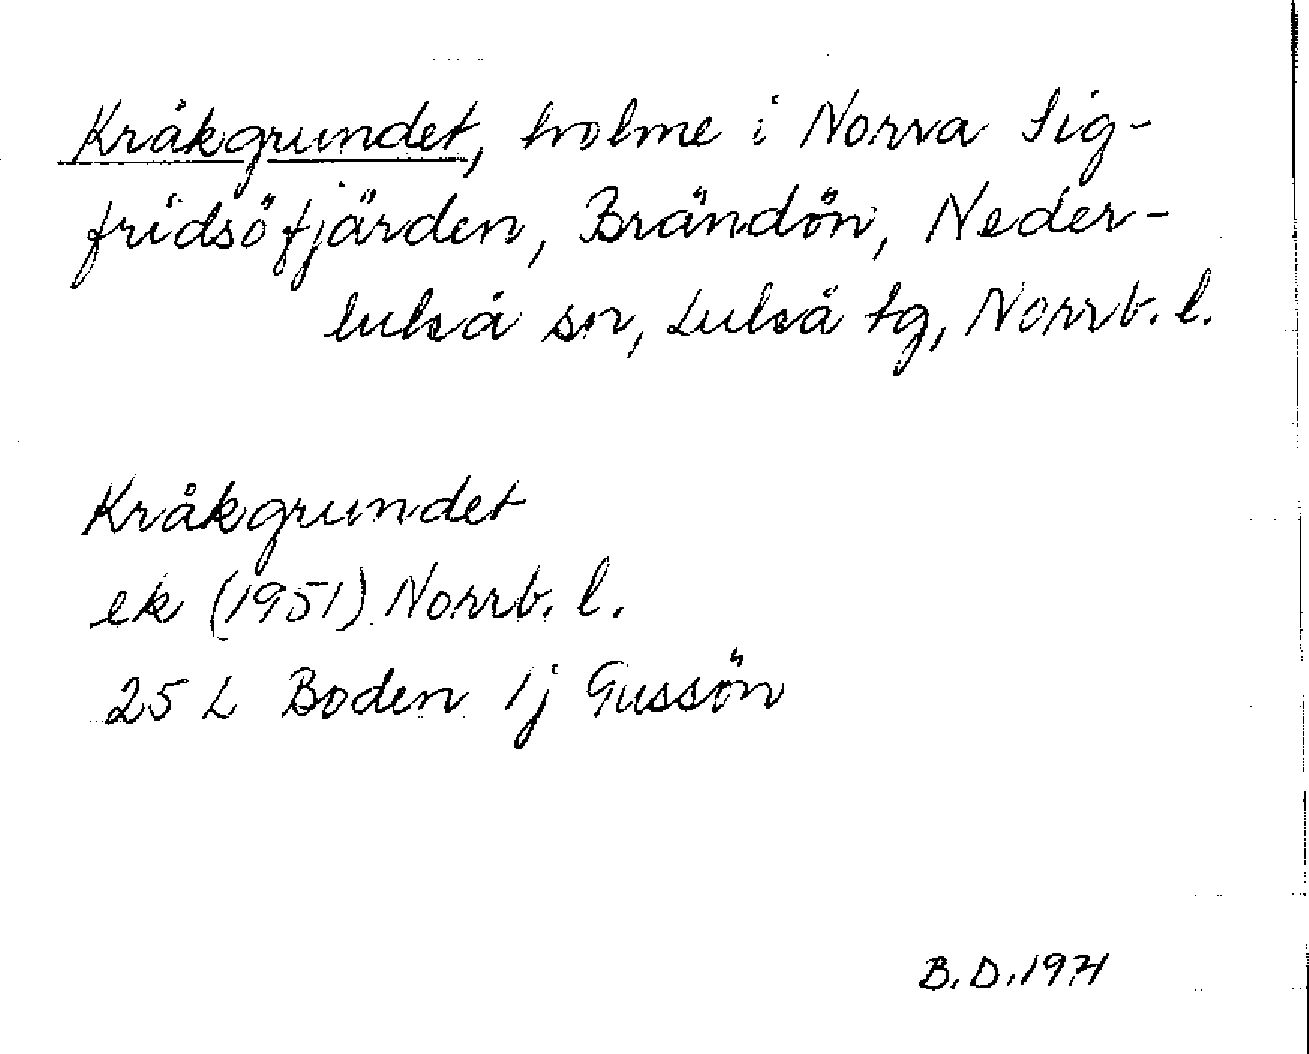 Kråkgrundet, holme i Norra Sig-
fridsöfjärden, Brändön, Neder-
luleå sn, Luleå tg, Norrb. l.
Kråkgrundet
ek (1951) Norrb. l.
25 L Boden 1j Gussön
B.D. 1971